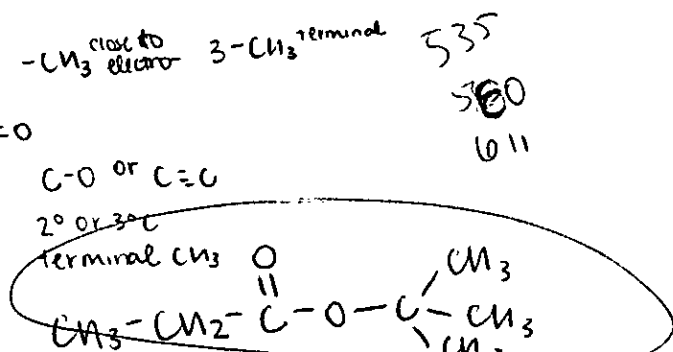 -CH₃ close to electro 3-CH₃ terminal 535
580
=O
611
C-O or C=C
2° or 3°C
terminal CH₃
O CH₃
||
CH₃-CH₂-C-O-C-CH₃
CH₃